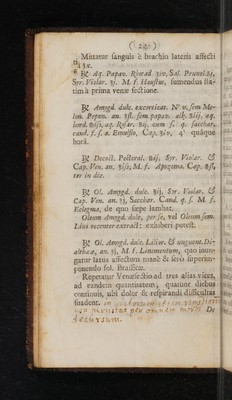 ( 240 )
Mittatur sanguis è brachio lateris affecti
℥ix.
℞ Aq. Papav. Rhœad ℥iv, Sal. Prunel. ℈i,
Syr. Violar. ℥j. M. f. Haustus, sumendus sta-
tim à prima venæ sectione.
℞ Amygd. dulc. excorticat. Nº v. sem Me-
lon. Pepon. an. ℥ß. sem papav. alb.
hord. aq. Rosar. ʒij, cum s. q. sacchar.
cand. f. s. a. Emulsio, Cap. ℥iv, 4ª quâque
horâ.
℞ Decoct. Pectoral. ℔ij, Syr. Violar. &
Cap. Ven. an. M. f. Apozema. Cap. ℔ß,
ter in die.
℞ Ol. Amygd. dulc. ℥ij, Syr. Violar. &
Cap. Ven. an. ℥j, Sacchar. Cand. q. s. M. f.
Eclegma, de quo sæpe lambat.
Oleum Amygd. dulc. per se, vel Oleum sem.
Lini recenter extract: exhiberi potest.
℞ Ol. Amygd. dulc. Lilior. & unguent. Di-
althææ, an. ℥j, M. f. Linimentum, quo inun-
gatur latus affectum mane & serò superim-
ponendo fol. Brassicæ.
Repetatur Venæsectio ad tres alias vices,
ad eandem quantitatem, quatuor diebus
continuis, ubi dolor & respirandi difficultas
suadent.
non per omnem morbi
decursum. De